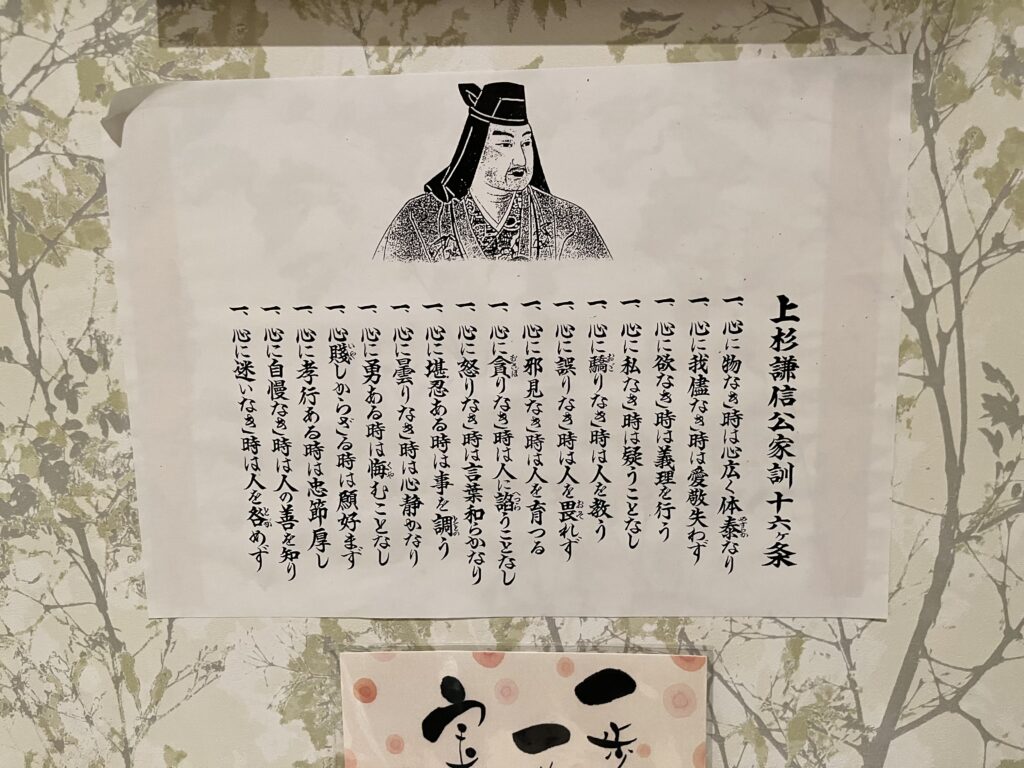 上杉謙信公家訓十六ヶ条
一、心に物なき時は心広く体泰なり
一、心に我儘なき時は愛敬失わず
一、心に欲なき時は義理を行う
一、心に私なき時は疑うことなし
一、心に驕りなき時は人を教う
一、心に誤りなき時は人を畏れず
一、心に邪見なき時は人を育つる
一、心に貪りなき時は人に諂うことなし
一、心に怒りなき時は言葉和らかなり
一、心に堪忍ある時は事を調う
一、心に曇りなき時は心静かなり
一、心に勇ある時は悔むことなし
一、心賤しからざる時は願好まず
一、心に孝行ある時は忠節厚し
一、心に自慢なき時は人の善を知り
一、心に迷いなき時は人を咎めず
一歩
一